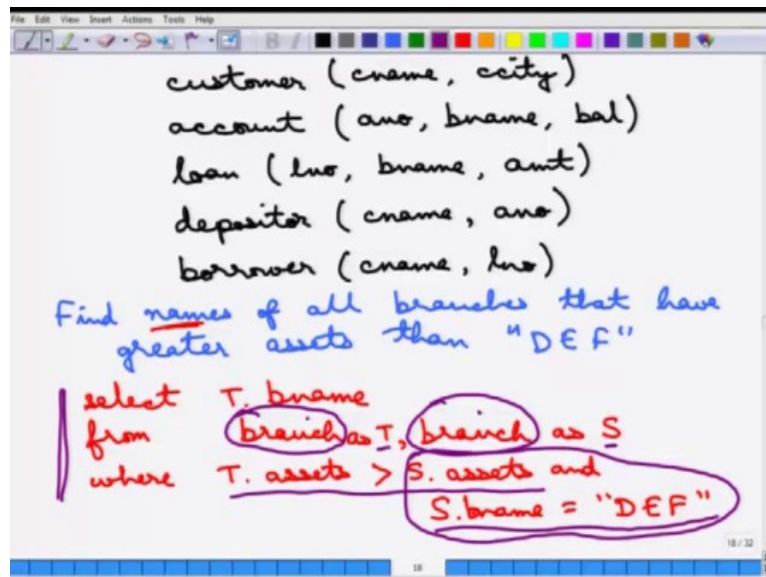 File Edit View Insert Actions Tools Help
customer (cname, ccity)
account (ano, bname, bal)
loan (lno, bname, amt)
depositor (cname, ano)
borrower (cname, lno)
Find names of all branches that have
greater assets than "DEF"
select T. bname
from branch as T, branch as S
where T. assets > S. assets and
S. bname = "DEF"
18 / 32
18